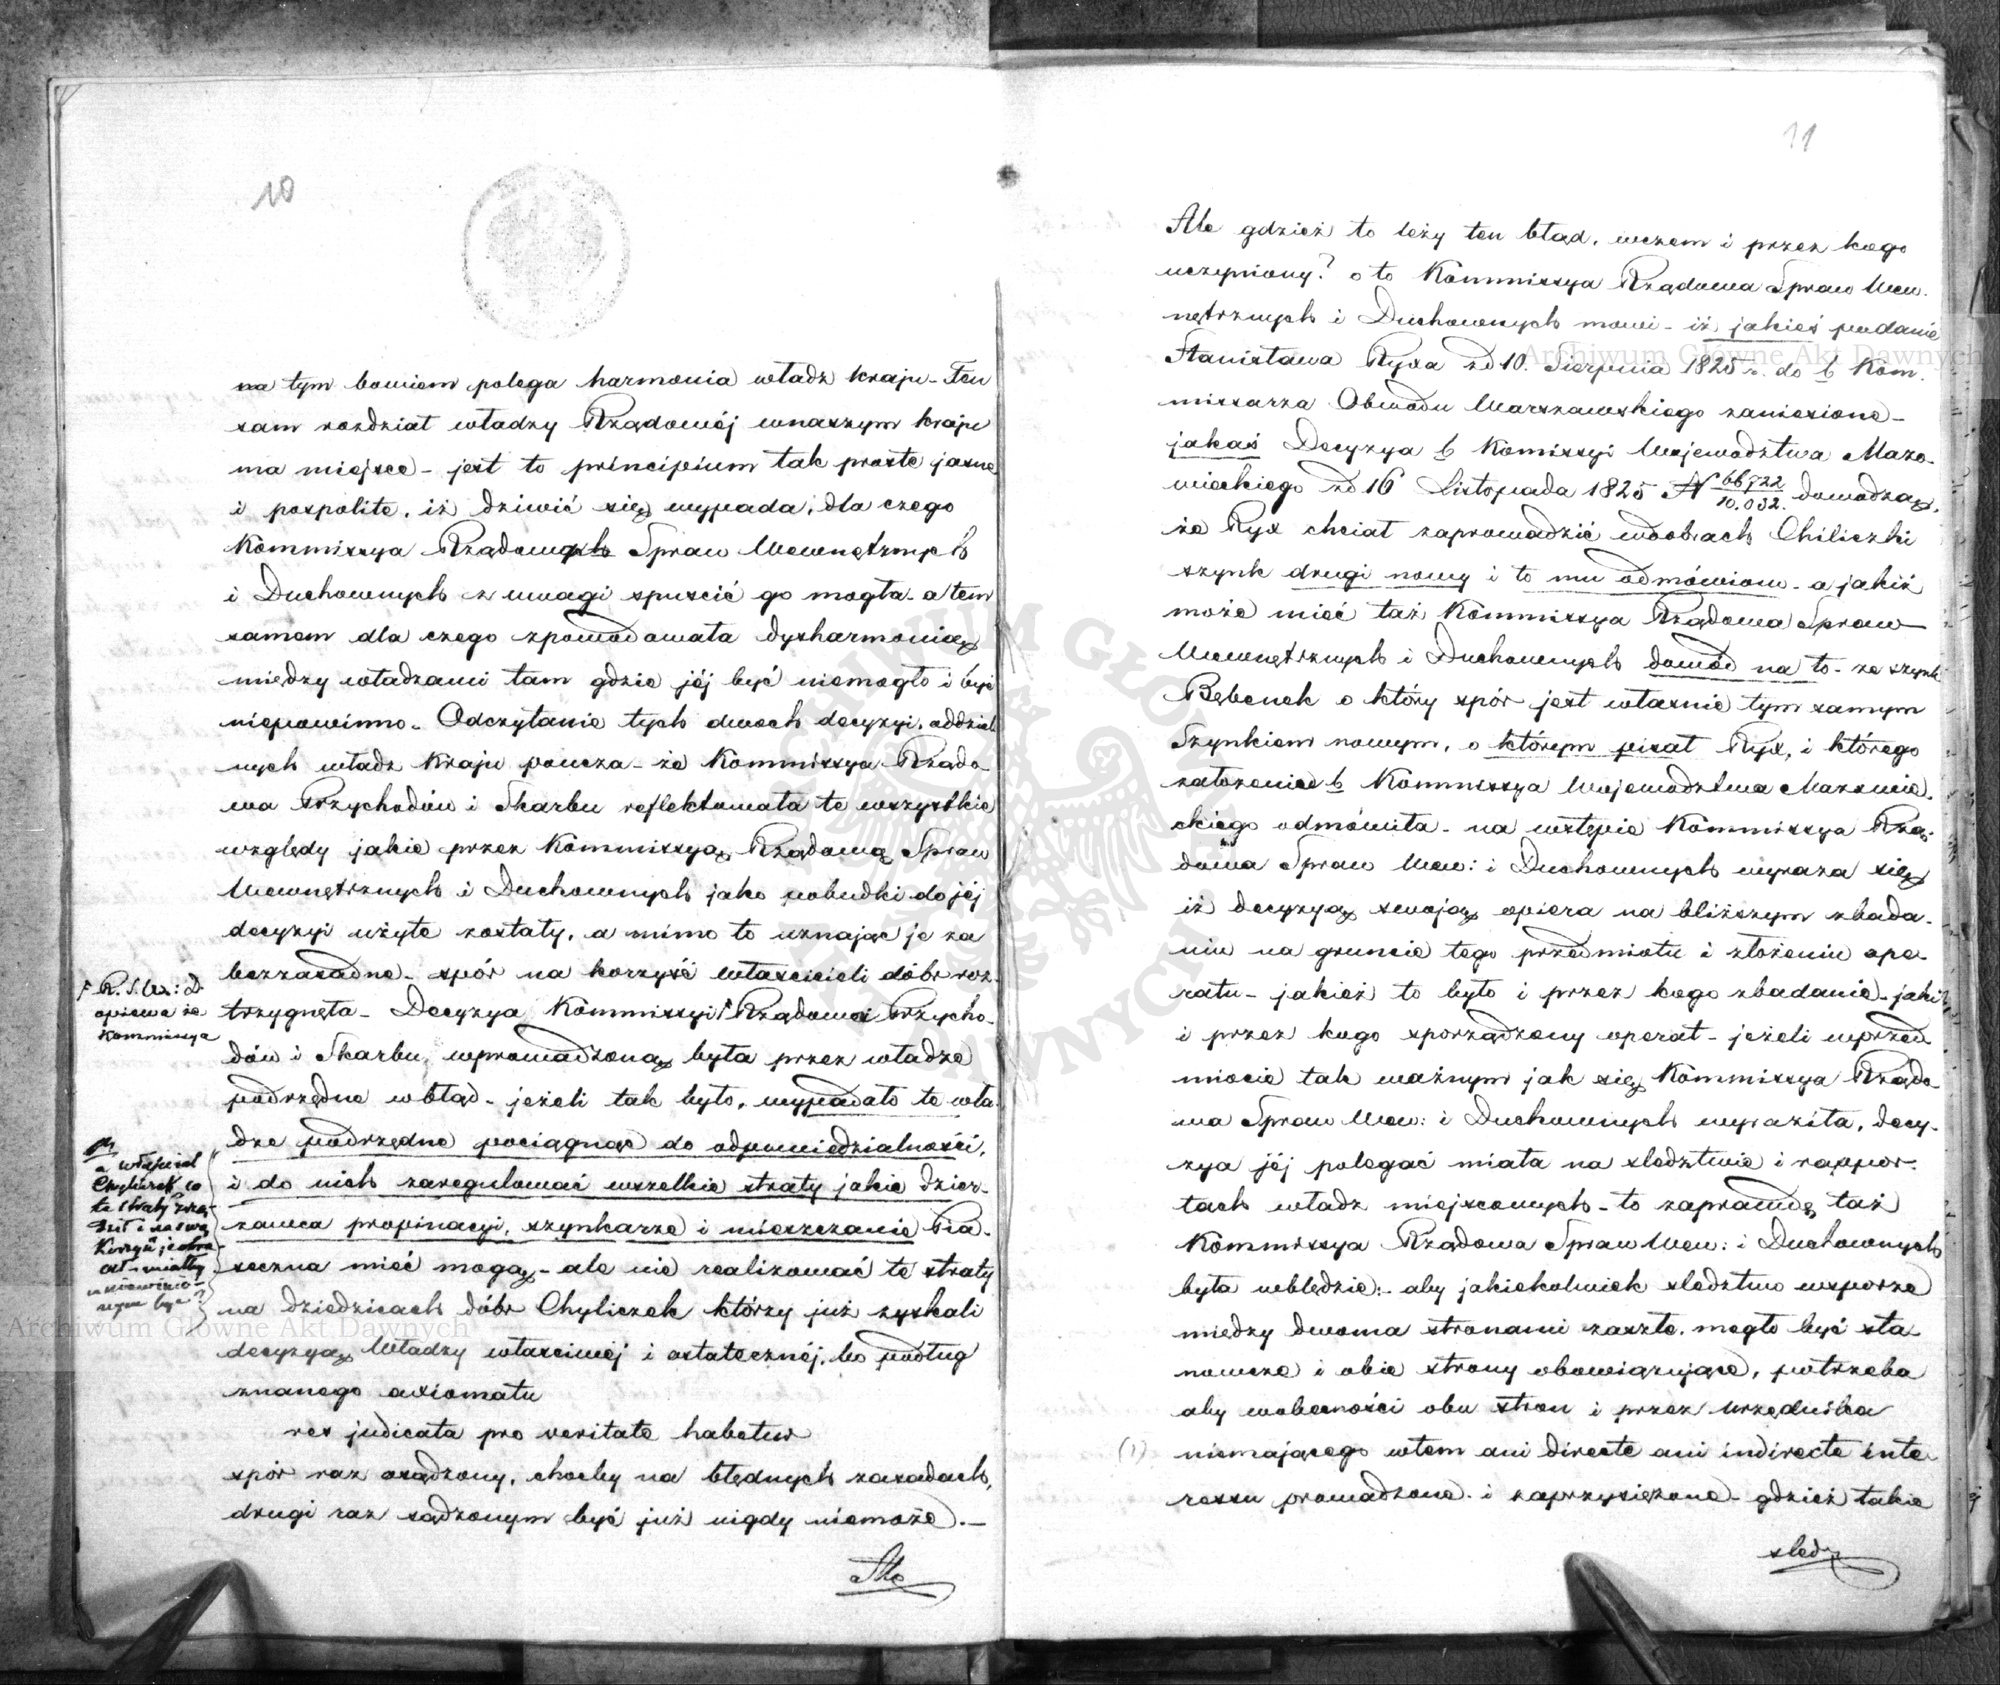 10
na tym bowiem polega harmonia władz kraju - Ten
sam rozdział władzy Rządowéj wnaszym kraju
ma miejsce - jest to principium tak proste jasne
i pospolite, iż dziwić się wypada, dla czego
Kommissya Rządowa Spraw Wewnętrznych
i Duchownych z uwagi spuscić go mogła - a tem
samem dla czego spowodowała dysharmonią
między władzami tam gdzie jéj być niemogło i być
niepowinno - Odczytanie tych dwoch decyzyi, oddziel
nych władz Kraju poucza - że Kommissya Rządo
wa Przychodów i Skarbu reflektowała te wszystkie
względy jakie przez Kommissyą Rządową Spraw
Wewnętrznych i Duchownych jako pobudki do jéj
decyzyi użyte zostały, a mimo to uznając je za
bezzasadne - spór na korzyść właścicieli dóbr roz-
trzygnęła - Decyzya Kommissyi Rządowa Przycho-
dów i Skarbu, wprowadzoną była przez władze
podrzędne w błąd - jeżeli tak było, wypadało te wła
dze podrzędne pociągnąć do odpowiedzialności,
i do nich zaregulować wszelkie straty jakie dzier-
zawca propinacyi, szynkarze i mieszczanie Pia-
seczna mieć mogą - ale nie realizować te straty
na dziedzicach dóbr Chyliczek którzy już zyskali
decyzyą Władzy właściwéj i ostatecznéj, bo podług
znanego axiomatu
res judicata pro veritate habetur
spór raz osądzony, choćby na błędnych zasadach,
drugi raz sądzonym być już nigdy niemoże. -
Ale
K. R. S. We: i D.
opiewa że
Kommissya
a właściciel
Chyliczek co
te straty zrzą-
dził i na swą
Korzyść je obra-
cał - miałby
niewinio-
nym być?
11
Ale gdzież to leży ten błąd, wczem i przez kogo
uczyniony? o to Kommissya Rządowa Spraw Wew.
nętrznych i Duchownych mowi - iż jakieś podanie
Stanisława Ryxa zd 10. Sierpnia 1825 r. do b Kom.
missarza Obwodu Warszawskiego zaniesione -
jakaś Decyzya b Kommissyi Województwa Mazo-
wieckiego zd 16 Listopada 1825 N 66722/10.032. dowodzą,
że Ryx chciał zaprowadzić wdobrach Chiliczki
szynk drugi nowy i to mu odmówiono - a jakiż
może mieć taż Kommissya Rządowa Spraw
Wewnętrznych i Duchownych dowód na to - że szynk
Bębenek o który spór jest własnie tym samym
Szynkiem nowym, o którym pisał Ryx, i którego
założenie b Kommissya Województwa Mazowie.
ckiego odmówiła - na wstępie Kommissya Rzą-
dowa Spraw Wew: i Duchownych wyraza się
iż decyzyą swoją opiera na bliższym zbada-
niu na gruncie tego przedmiotu i złożeniu ope-
ratu - jakież to było i przez kogo zbadanie - jaki
i przez kogo sporządzony operat - jeżeli wprzed
miocie tak ważnym jak się Kommissya Rządo-
wa Spraw Wew: i Duchownych wyraziła, decy-
zya jéj polegać miała na sledztwie i rappor-
tach władz miejscowych - to zaprawdę taż
Kommissya Rządowa Spraw Wew: i Duchownych
była wbłędzie: - aby jakiekolwiek sledztwo wsporze
między dwoma stronami zaszłe, mogło być sta-
nowcze i obie strony obowiązujące, potrzeba
aby wobecności obu stron i przez urzędnika
(1) niemającego wtem ani directe ani indirecte inte-
ressu prowadzone - i zaprzysiężone - gdzież takie
sledz
Archiwum Główne Akt Dawnych
Archiwum Główne Akt Dawnych
ARCHIWUM GŁÓWNE AKT DAWNYCH